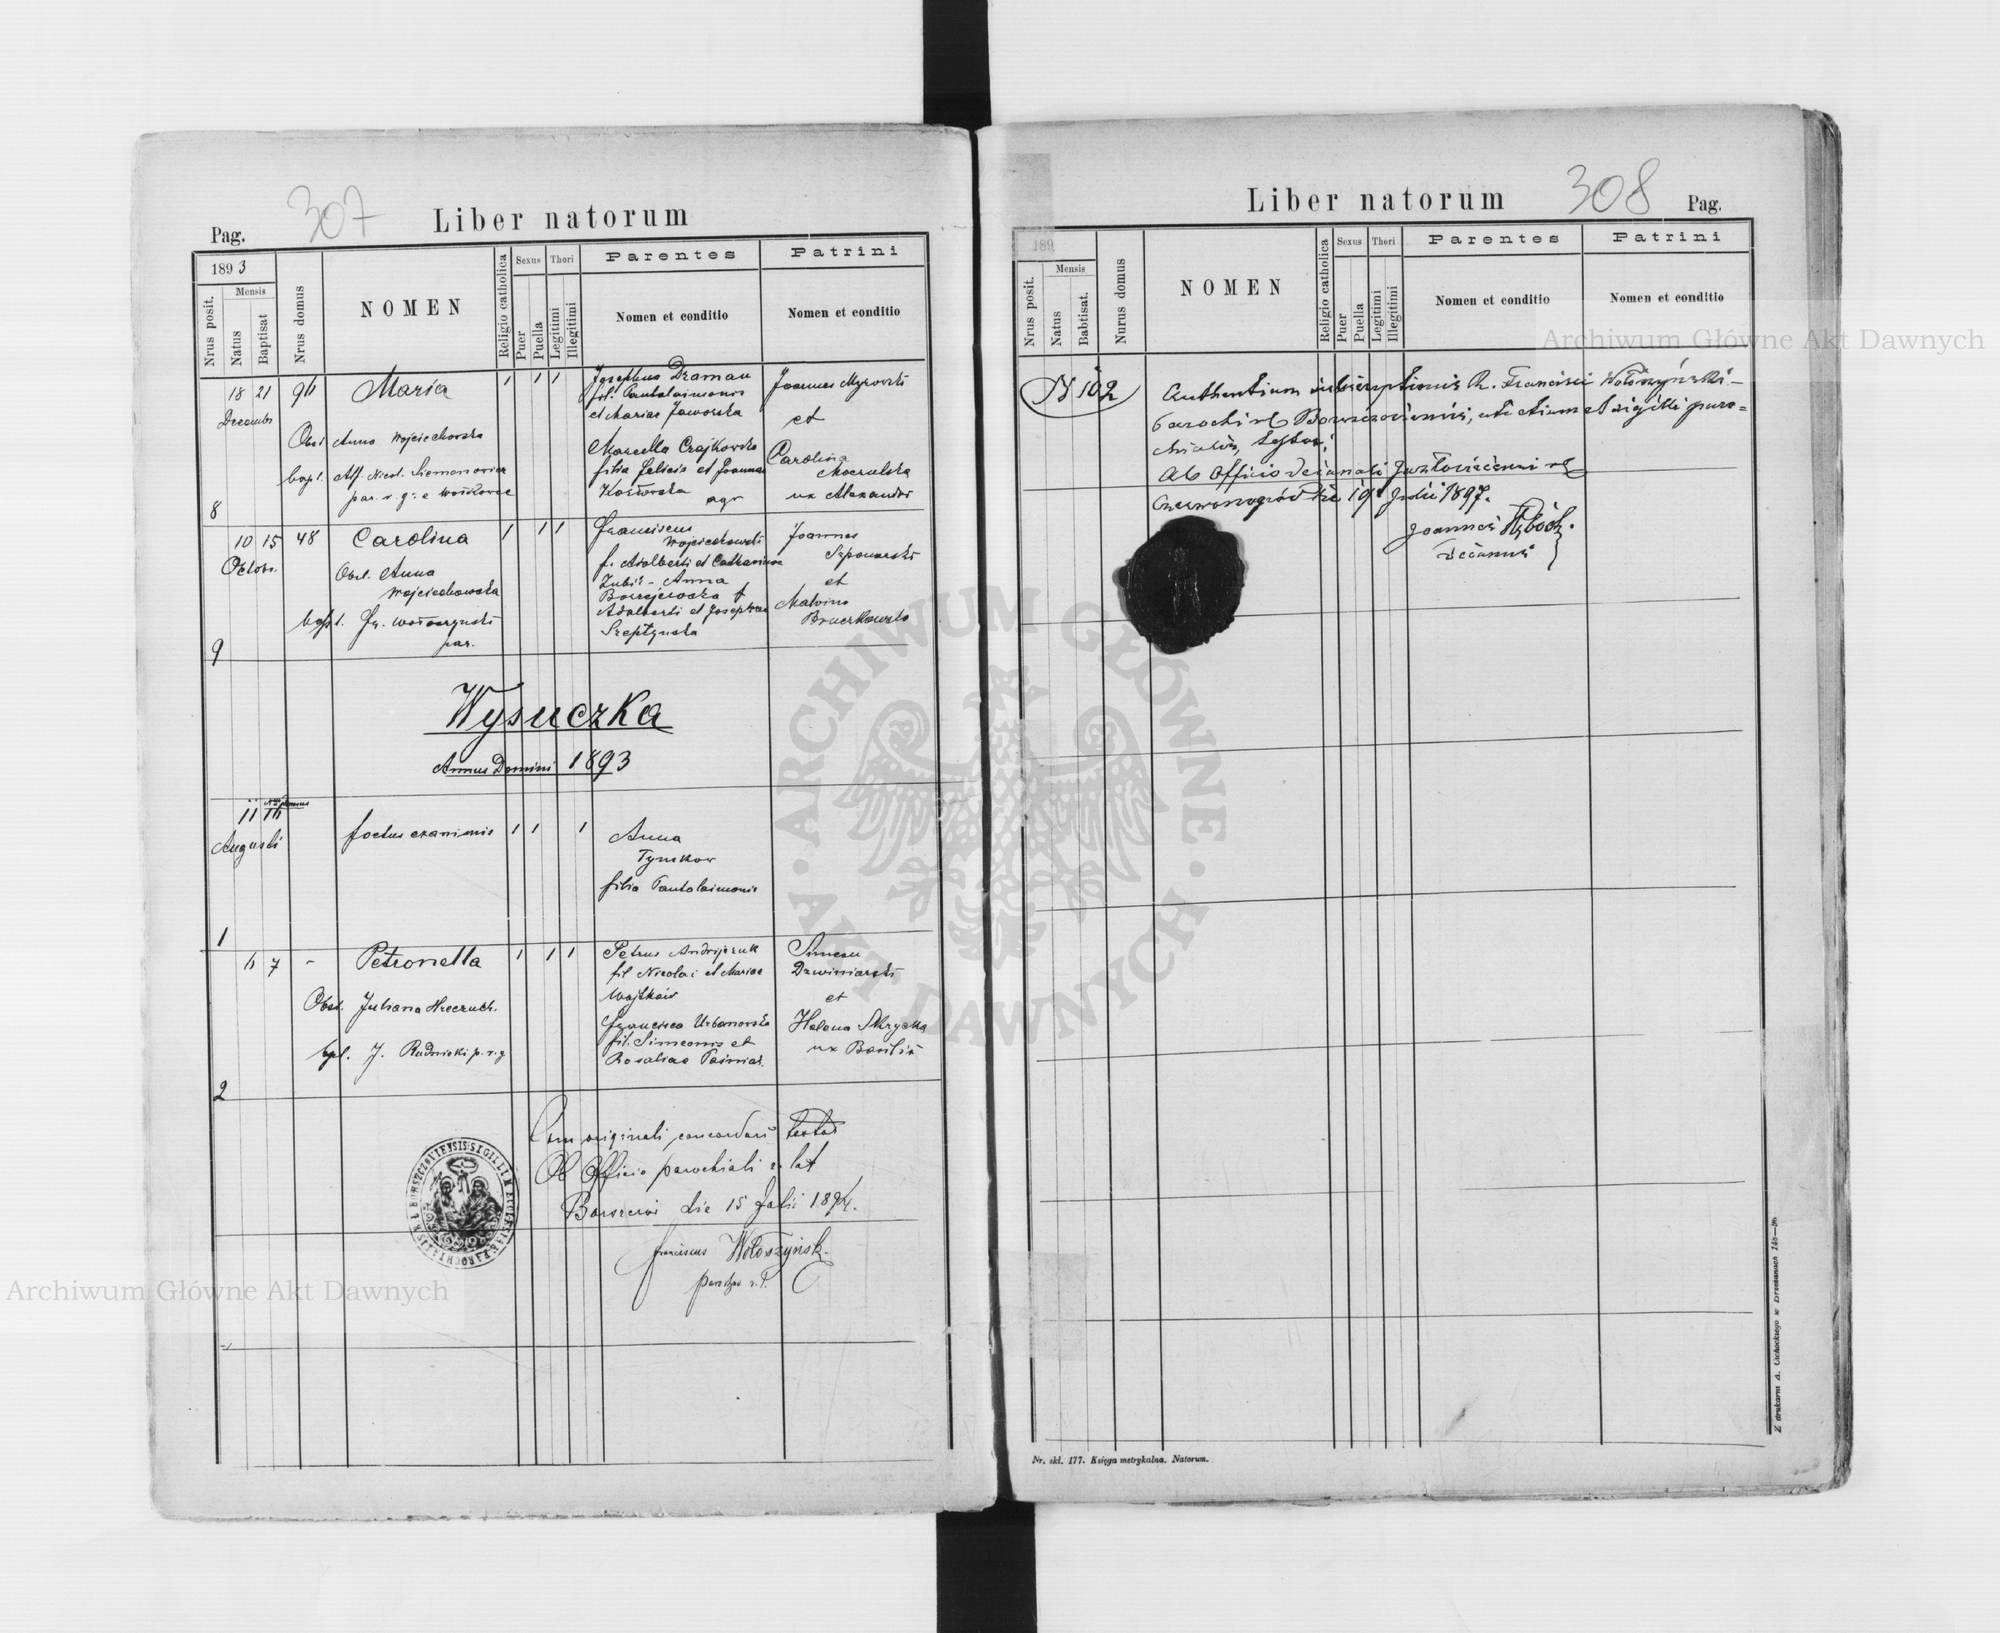 307
Pag.
Liber natorum
1893
Nrus posit.
Mensis
Natus
Baptisat
Nrus domus
NOMEN
Religio catholica
Sexus
Puer
Puella
Thori
Legitimi
Illegitimi
Parentes
Nomen et conditio
Patrini
Nomen et conditio
8
18 21
Decembr
Maria
1 1 1
Obst Anna Wojciechowska
bapt.
par. r. g:
Josephus Draman
fil. Pantalaimonis
et Mariae Jaworska
Marcella Czajkowska
filia Felicis et Joannae
agr
Joannes
et
Carolina
ux Alexandri
9
10 15
Octobr.
48
Carolina
1 1 1
Obst. Anna
Wojciechowska
bapt. Fr. Wołoszynski
par.
Franciscus
Wojciechowski
f. Adalberti et Catharinae
Zubik - Anna
Adalberti et Josephae
Szeptyńska
Joannes
Szponarski
et
Malvina
Wysuczka
Annus Domini 1893
1
11
Augusti
foetus exanimis
1 1 1
Anna
Tymkow
filia Pantalaimonis
2
6 7
-
Petronella
1 1 1
Obst. Juliana
bpt. J. Rudnicki p. r. g
Petrus Andrijczuk
fil Nicolai et Mariae
Wojtków
Francisca Urbanowska
fil. Simeonis et
Rosaliae
Simeon
Dzwiniarski
et
Helena
ux Basilii
Cum originali concordari testor
Ab Officio parochiali r. lat
Borszczów die 15 Julii 1894.
Franciscus Wołoszyński
parochus r. l.
Liber natorum
308
Pag.
189
Nrus posit.
Mensis
Natus
Babtisat.
Nurus domus
NOMEN
Religio catholica
Sexus
Puer
Puella
Thori
Legitimi
Illegitimi
Parentes
Nomen et conditio
Patrini
Nomen et conditio
N 102
Authentiam subscriptionis R. Francisci Wołoszyński -
Parochi rl Borszczoviensis, uti etiam et sigilli paro=
chialis, testor:
Ab Officio decanali Jazłoviciensi rl
Czerwonogród die 19 Julii 1897.
Joannes
decanus
Nr. skl. 177. Księga metrykalna. Natorum.
Z drukarni A. Cichockiego w Brzeżanach
Archiwum Główne Akt Dawnych
Archiwum Główne Akt Dawnych
ARCHIWUM GŁÓWNE · AKT DAWNYCH ·